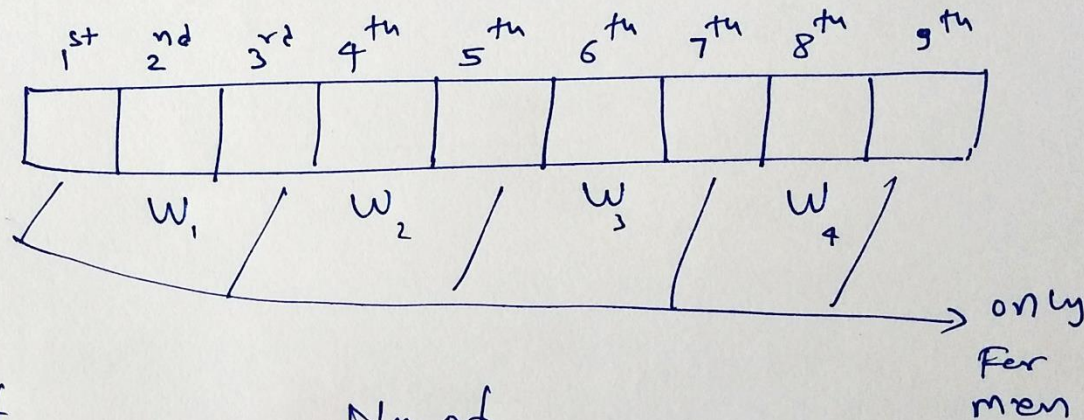 1st 2nd 3rd 4th 5th 6th 7th 8th 9th
W1 W2 W3 W4
only
For
men